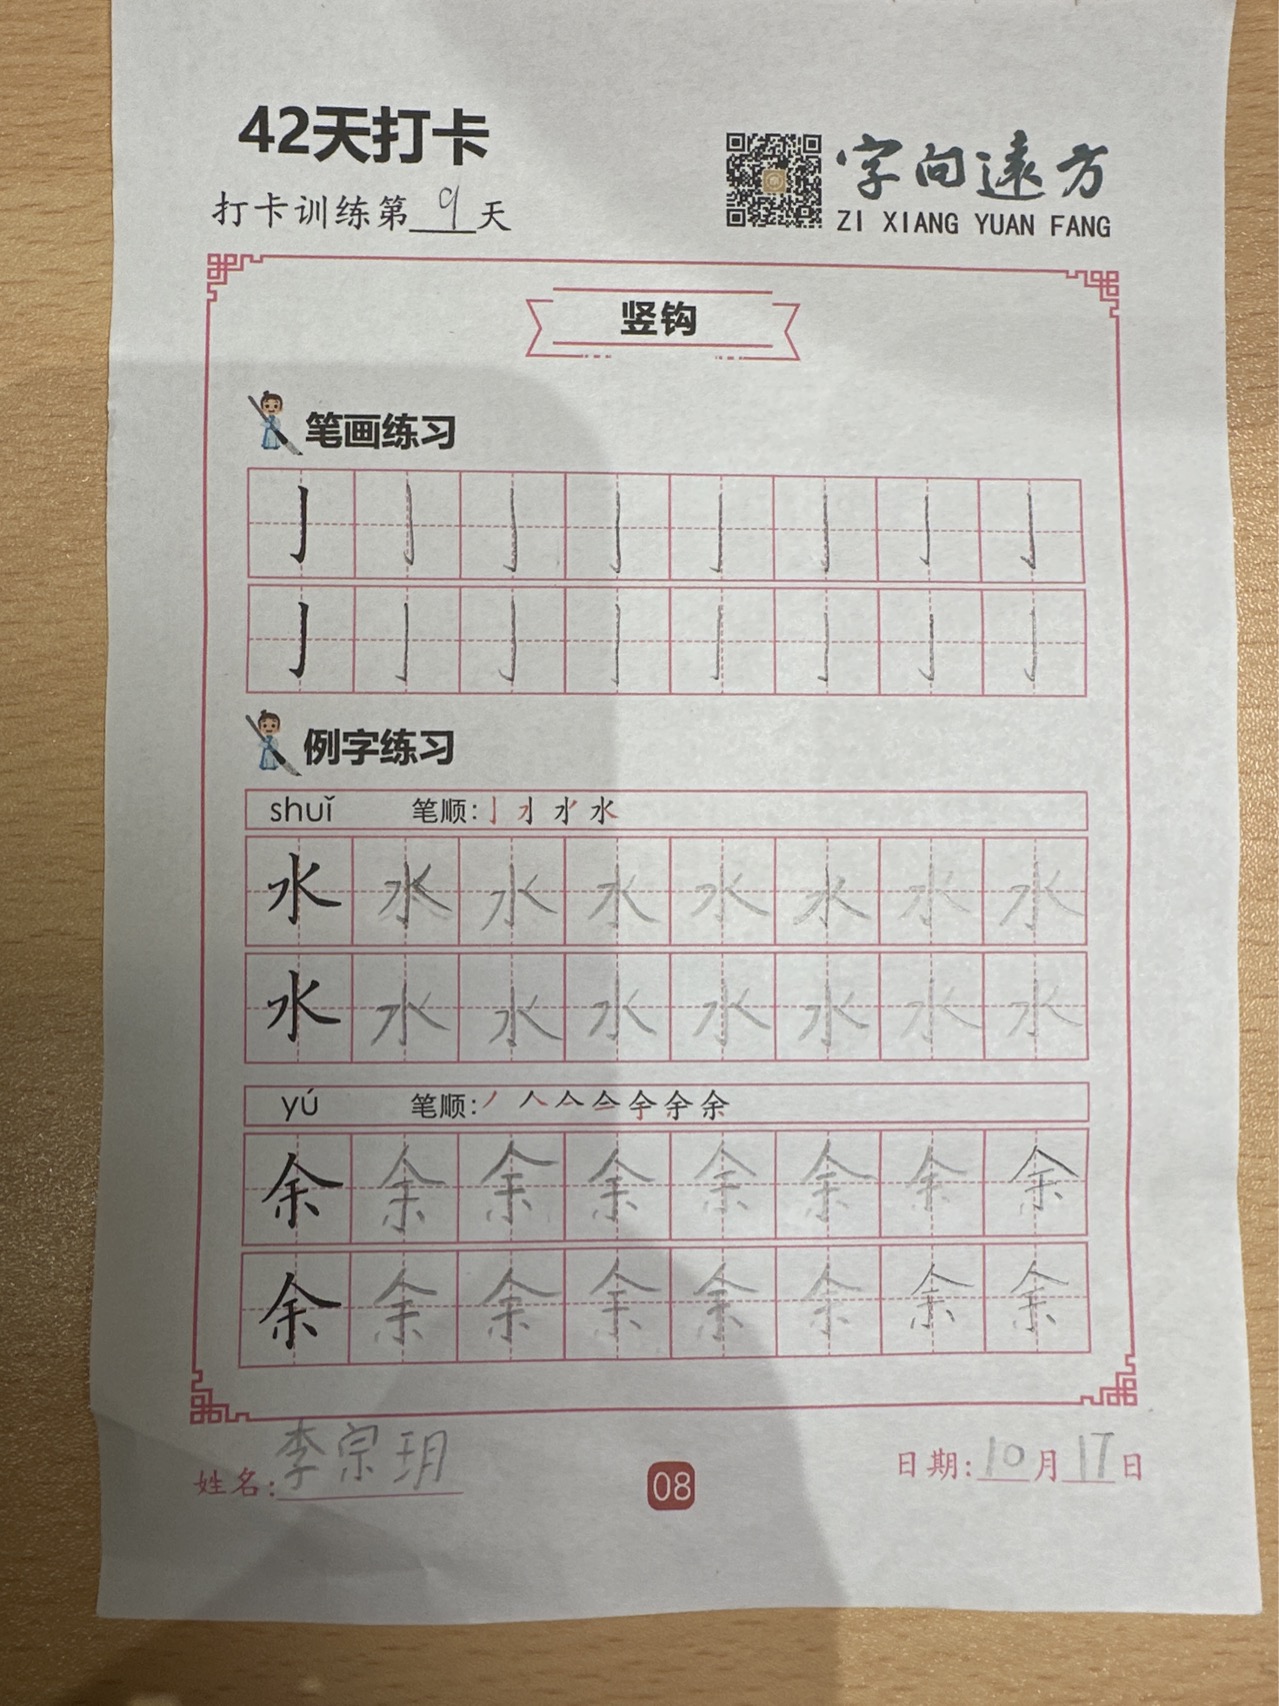 42天打卡
打卡训练第9天
字向遠方
ZI XIANG YUAN FANG
竖钩
笔画练习
亅 亅 亅 亅 亅 亅 亅 亅
亅 亅 亅 亅 亅 亅 亅 亅
例字练习
shuǐ 笔顺: 水
水 水 水 水 水 水 水 水
水 水 水 水 水 水 水 水
yú 笔顺: 丿 人 亼 余
余 余 余 余 余 余 余 余
余 余 余 余 余 余 余 余
姓名: 李宗玥
08
日期: 10月17日